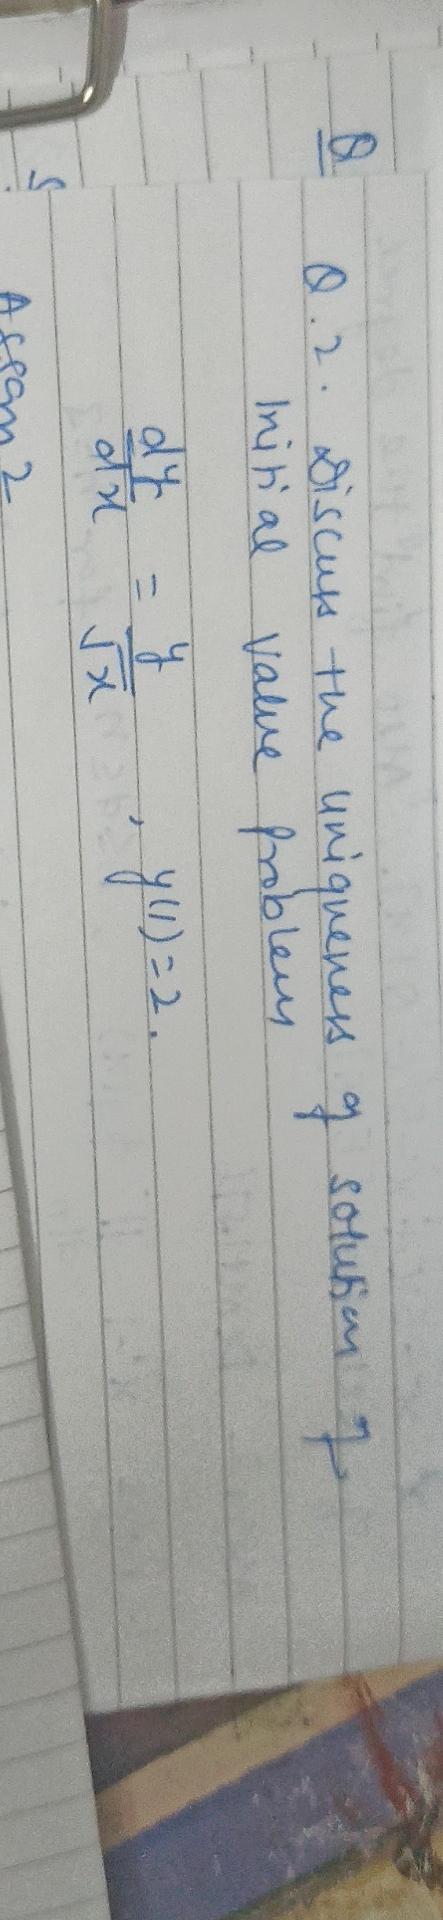 Q
Q.2. Discuss the uniqueness of solution of
Initial value problem
dy/dx = y/√x , y(1)=2.